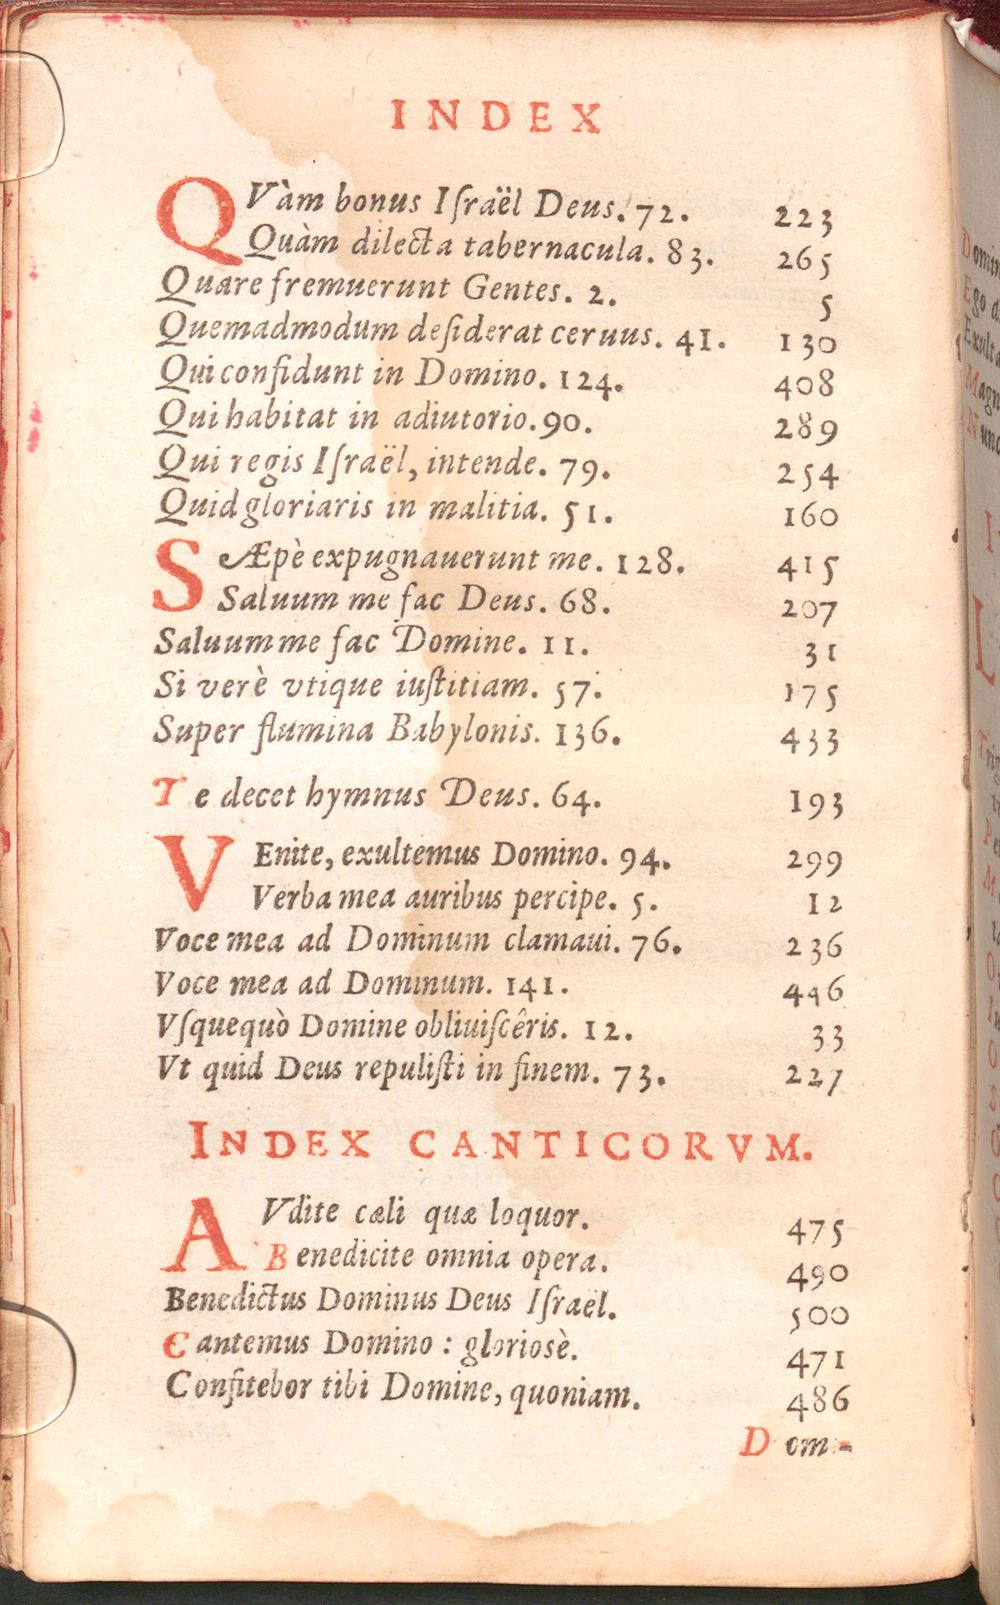 INDEX
QVàm bonus Iſraël Deus. 72. 223
Quàm dilecta tabernacula. 83. 265
Quare fremuerunt Gentes. 2. 5
Quemadmodum deſiderat ceruus. 41. 130
Qui confidunt in Domino. 124. 408
Qui habitat in adiutorio. 90. 289
Qui regis Iſraël, intende. 79. 254
Quid gloriaris in malitia. 51. 160
SÆpè expugnauerunt me. 128. 415
Saluum me fac Deus. 68. 207
Saluum me fac Domine. 11. 31
Si verè vtique iuſtitiam. 57. 175
Super flumina Babylonis. 136. 433
Te decet hymnus Deus. 64. 193
VEnite, exultemus Domino. 94. 299
Verba mea auribus percipe. 5. 12
Voce mea ad Dominum clamaui. 76. 236
Voce mea ad Dominum. 141. 446
Vſquequò Domine obliuiſcêris. 12. 33
Vt quid Deus repuliſti in finem. 73. 227
INDEX CANTICORVM.
AVdite cæli quæ loquor. 475
Benedicite omnia opera. 490
Benedictus Dominus Deus Iſraël. 500
Cantemus Domino : gloriosè. 471
Confitebor tibi Domine, quoniam. 486
Dom-